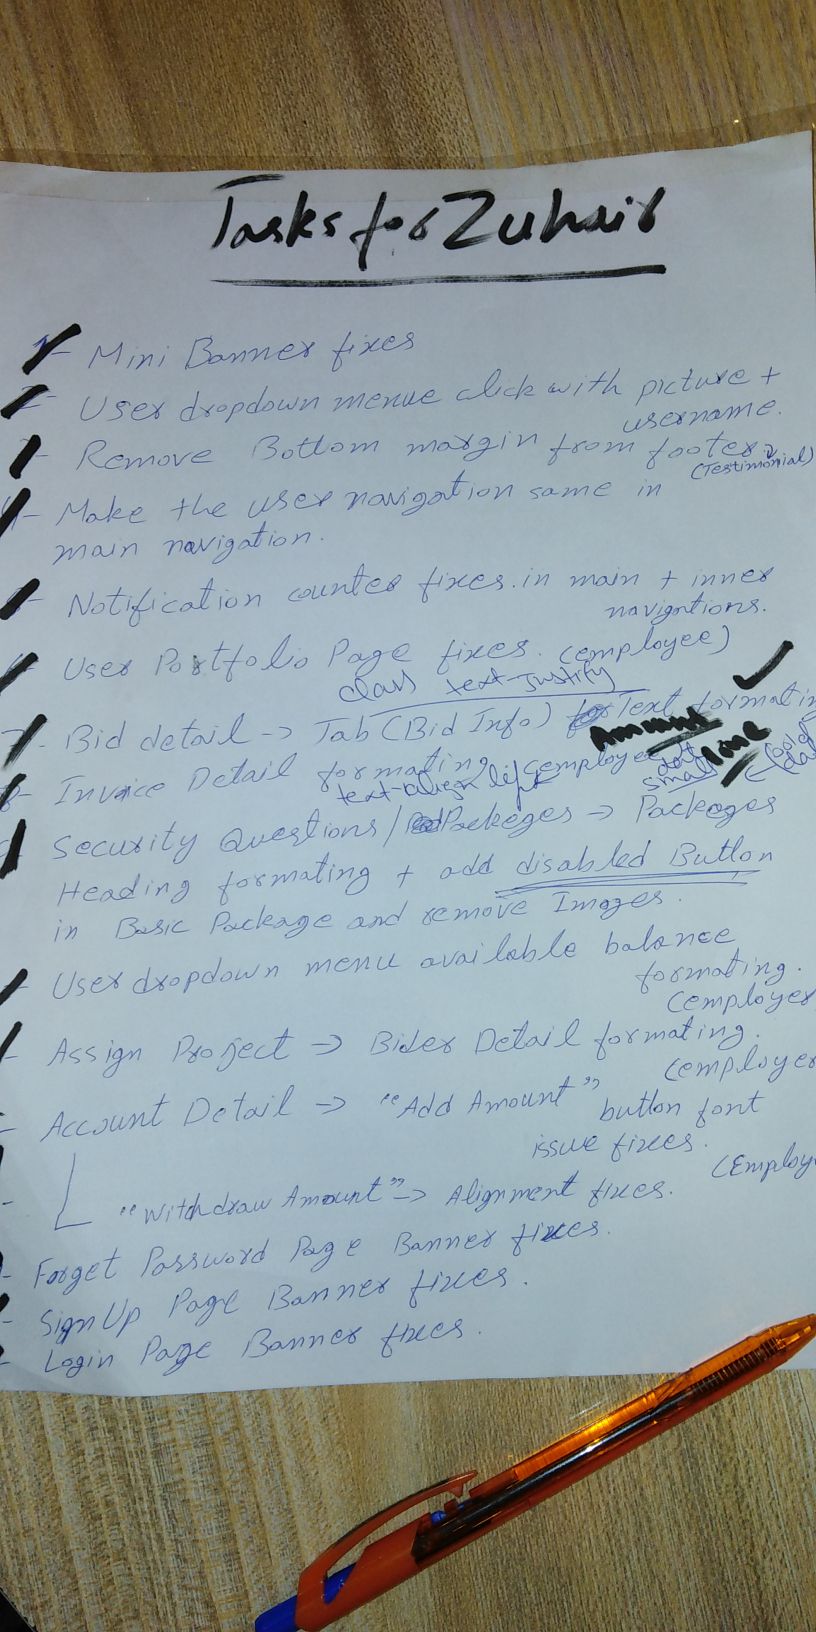 Tasks for Zuhair
1- Mini Banner fixes
2- User dropdown menue click with picture +
username.
- Remove Bottom margin from footer
(Testimonial)
4- Make the user navigation same in
main navigation.
- Notification counter fixes. in main + inner
navigations.
- User Portfolio Page fixes. (employee)
class text-justify
7- Bid detail -> Tab (Bid Info) for Text formatin
Amount
line
8- Invoice Detail formating (employee
text-align left
small
Security Questions / Packeges -> Packages
Heading formating + add disabled Button
in Basic Package and remove Images.
User dropdown menu available balance
formating.
(employer
- Assign Project -> Bider Detail formating.
(employer
- Account Detail -> "Add Amount" button font
issue fixes.
(Employ
- "Withdraw Amount" -> Alignment fixes.
- Forget Password Page Banner fixes.
- SignUp Page Banner fixes.
- Login Page Banner fixes.